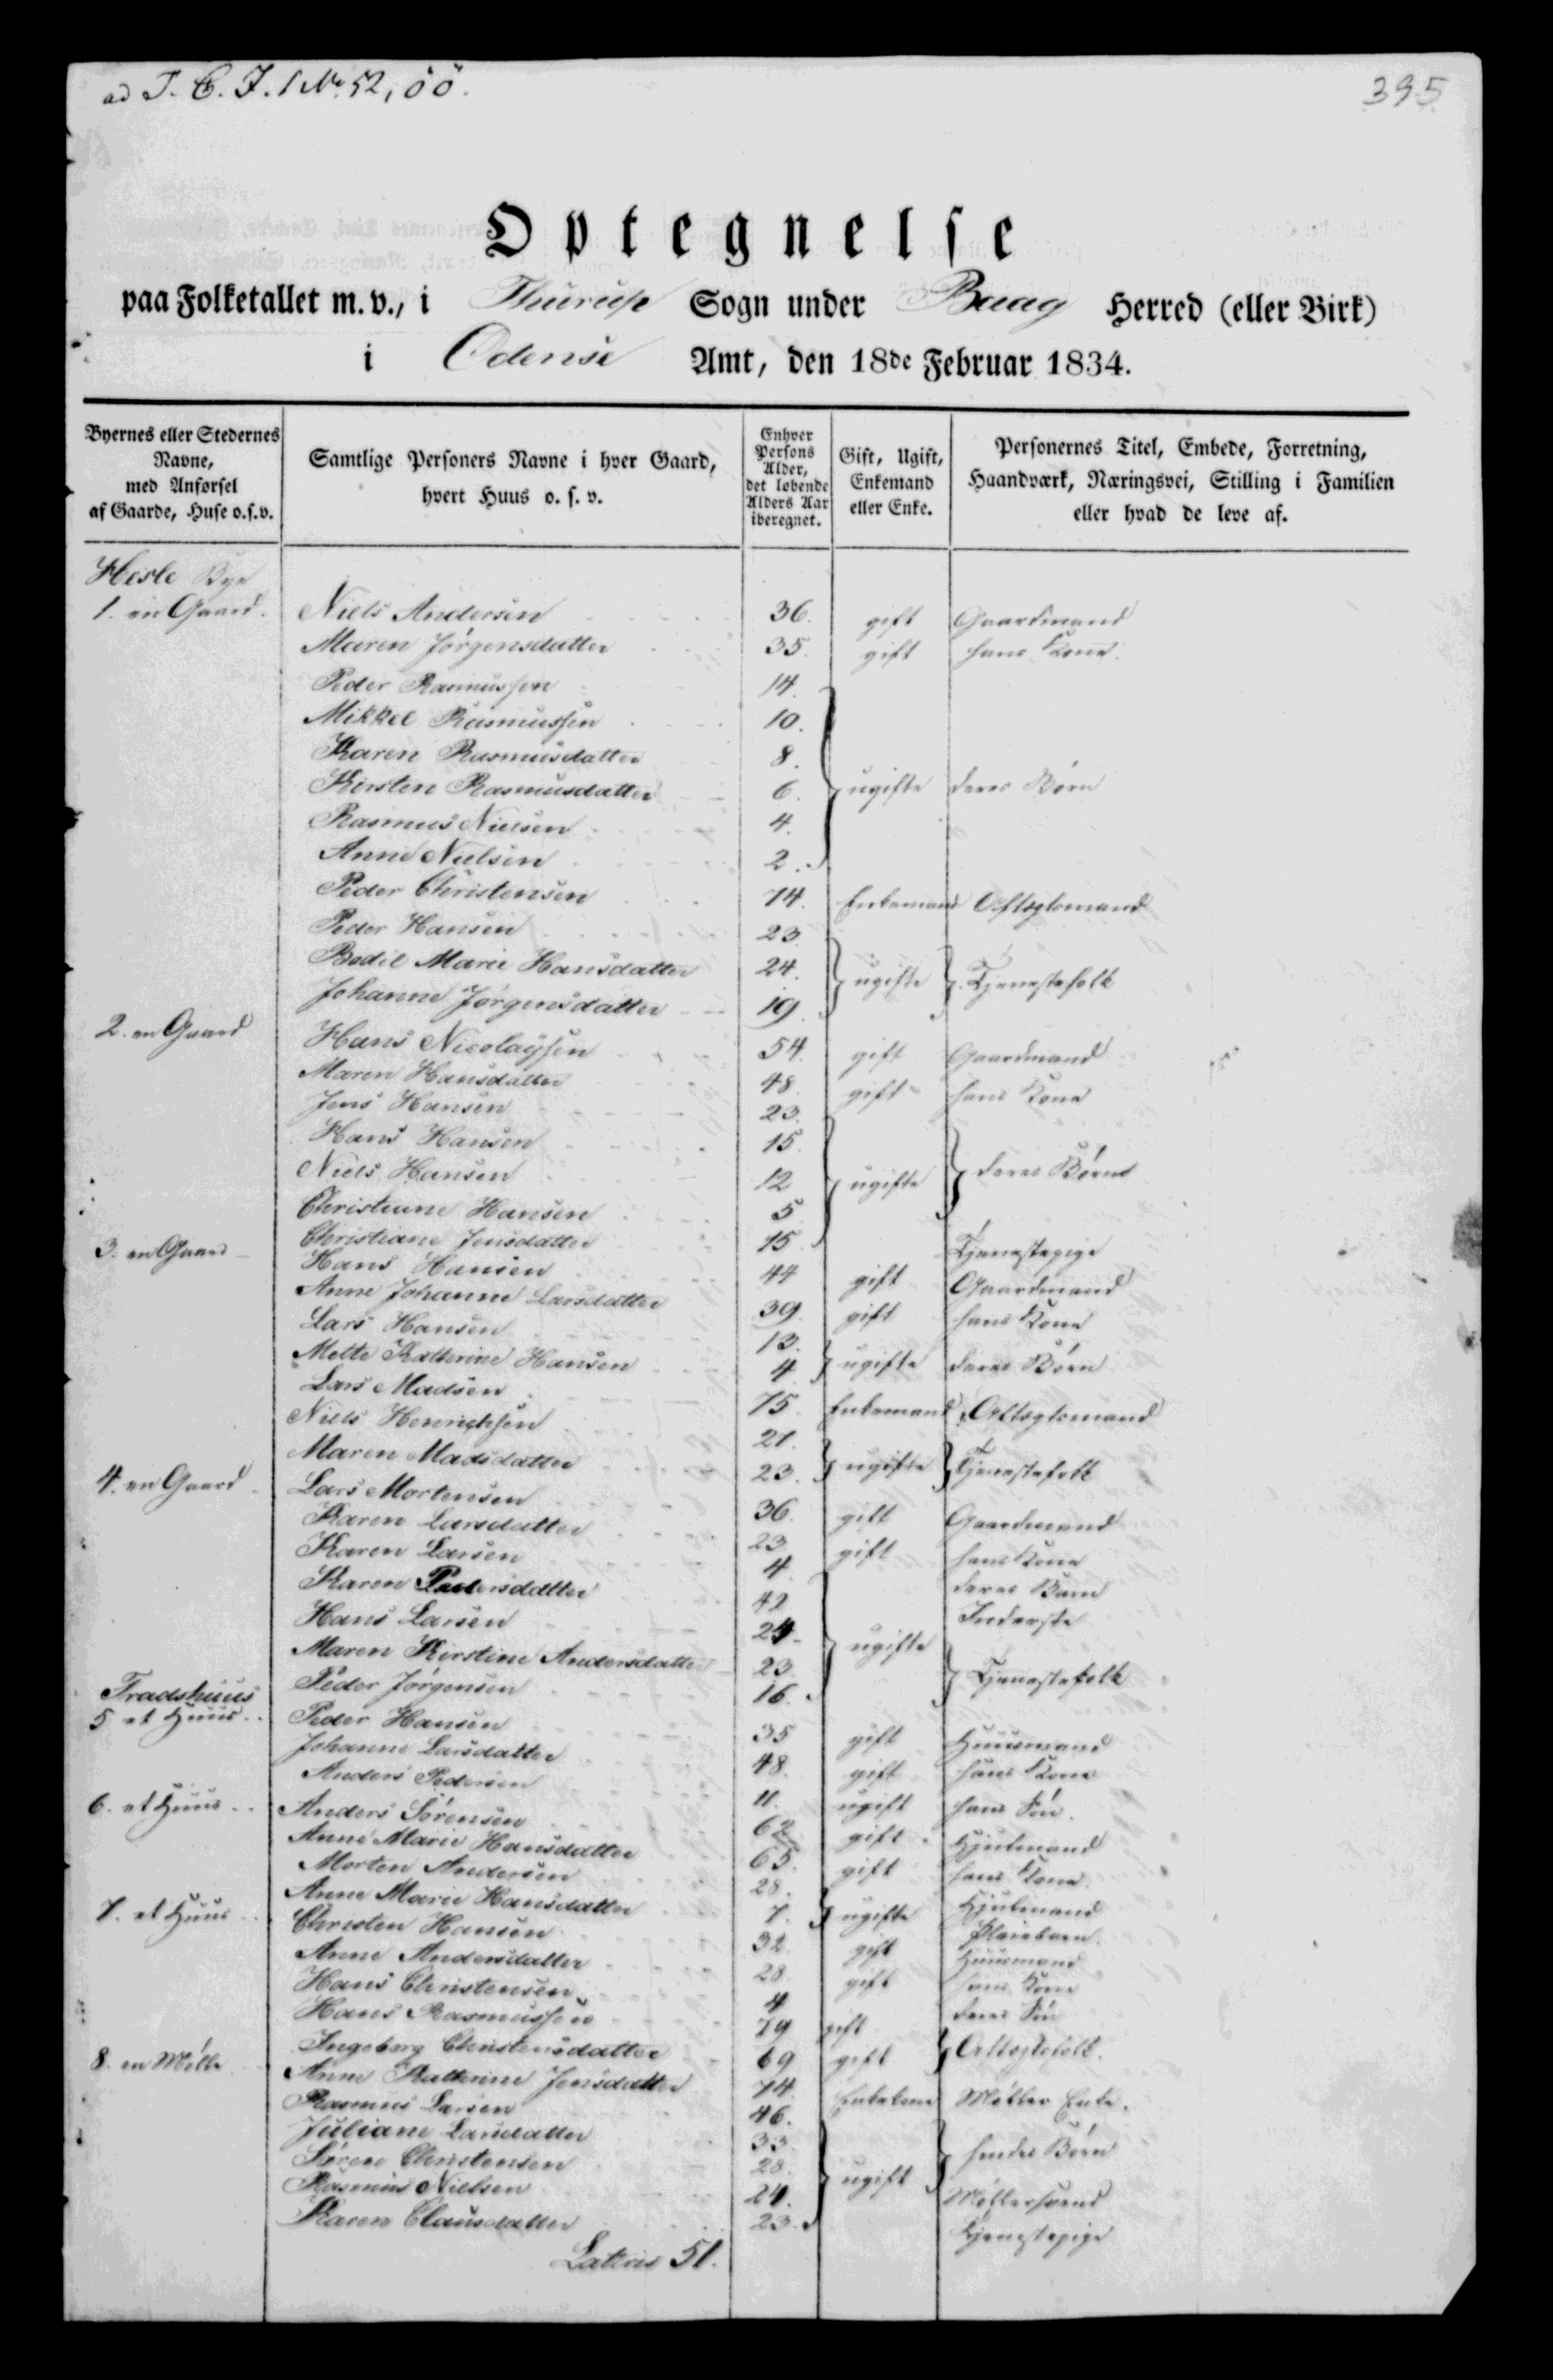 ad T. C. I. 1 No. 52, öö.
395
Optegnelse
paa Folketallet m. v., i Thurup Sogn under Baag Herred (eller Birk)
i Odense Amt, den 18de Februar 1834.
Byernes eller Stedernes Navne, med Anførsel af Gaarde, Huse o.s.v.
Samtlige Personers Navne i hver Gaard, hvert Huus o. s. v.
Enhver Persons Alder, det løbende Alders Aar iberegnet.
Gift, Ugift, Enkemand eller Enke.
Personernes Titel, Embede, Forretning, Haandværk, Næringsvei, Stilling i Familien eller hvad de leve af.
Hesle Bye
1. en Gaard. Niels Andersen 36. gift Gaardmand
Maren Jørgensdatter 35. gift hans Kone.
Peder Rasmussen 14.
Mikkel Rasmussen 10.
Karen Rasmusdatter 8.
Kirsten Rasmusdatter 6. ugifte deres Børn
Rasmus Nielsen 4.
Anne Nielsen 2.
Peder Christensen 74. Enkemand Aftægtsmand
Peder Hansen 23
Bodil Marie Hansdatter 24. ugifte Tjenestefolk
Johanne Jørgensdatter 19.
2. en Gaard Hans Nicolaysen 54. gift Gaardmand
Maren Hansdatter 48. gift hans Kone
Jens Hansen 23.
Hans Hansen 15.
Niels Hansen 12 ugifte deres Børn
Christiane Hansen 5
Christiane Jensdatter 15 Tjenestepige
3. en Gaard Hans Hansen 44 gift Gaardmand
Anne Johanne Larsdatter 39. gift hans Kone
Lars Hansen 13.
Mette Kathrine Hansen 4 ugifte deres Børn
Lars Madsen 75. Enkemand Aftægtsmand
Niels Henrichsen 21.
Maren Madsdatter 23. ugifte Tjenestefolk
4. en Gaard Lars Mortensen 36. gift Gaardmand
Karen Larsdatter 23 gift hans Kone
Karen Larsen 4. deres Barn
Karen Pedersdatter 42 Inderste
Hans Larsen 24. ugifte
Maren Kirstine Andersdatter 23. Tjenestefolk
Peder Jørgensen 16.
Fradshuus
5 et Huus Peder Hansen 35 gift Huusmand
Johanne Larsdatter 48. gift hans Kone
Anders Pedersen 11. ugift hans Søn.
6. et Huus Anders Sørensen 62 gift Hjulmand
Anne Marie Hansdatter 65. gift hans Kone
Morten Andersen 28. Hjulmand
Anne Marie Hansdatter 7. ugifte Pleiebarn.
7. et Huus Christen Hansen 32. gift Huusmand
Anne Andersdatter 28. gift hans Kone
Hans Christensen 4 deres Søn
Hans Rasmussen 79 gift
Ingeborg Christensdatter 69 gift Aftægtsfolk.
8. en Mølle Anne Kathrine Jensdatter 74. Enkekone Møller Enke.
Rasmus Larsen 46.
Juliane Larsdatter 33. hendes Børn
Søren Christensen 28. ugift
Rasmus Nielsen 24. Møllersvend
Karen Clausdatter 23. Tjenestepige
Lateris 51.